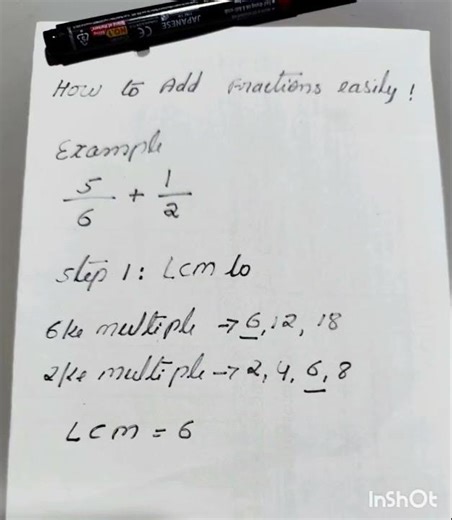 JAPANESE
How to Add Fractions easily!
Example
5/6 + 1/2
Step 1: LCM lo
6 ke multiple → 6, 12, 18
2 ke multiple → 2, 4, 6, 8
LCM = 6
InShOt